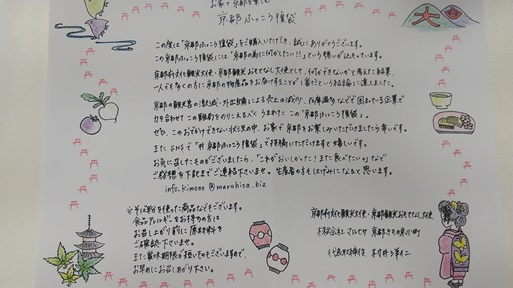 お家で京都を楽しむ
京都ふっこう福袋
この度は「京都ふっこう福袋」をご購入いただき、誠にありがとうございます。
この京都ふっこう福袋には「京都の為に何かしたい!!」という想いが込もっています。
京都府文化観光大使・京都観光おもてなし大使として、何ができないかと考えた結果、
一人でも多くの方に京都の物産品をお届けすることが1番だという結論に達しました。
京都の観光客の激減・外出自粛による売上の減少、在庫過多などで困まっている企業で
力を合わせてこの難局をのりこえるべくうまれたこの「京都ふっこう福袋」。
ぜひ、このおでかけできない状況の中、お家で京都をお楽しみいただけましたら幸いです。
またSNSで「#京都ふっこう福袋」で投稿いただけますと嬉しいです。
お気に召したものがございましたら、「これがおいしかった!また食べたい♡」など
ご感想を下記までご連絡下さいませ。生産者の方もはげみになると思います。
info.kimono@maruhisa.biz
※そば粉を使った商品などもございます。
食品アレルギーをお持ちの方は
お召し上がり前に原材料を
ご確認下さいませ。
また賞味期限が短いものもございますので、
お早めにお召しあがり下さい。
京都府文化観光大使・京都観光おもてなし大使
株式会社マルヒサ 京都きもの町
代表取締役